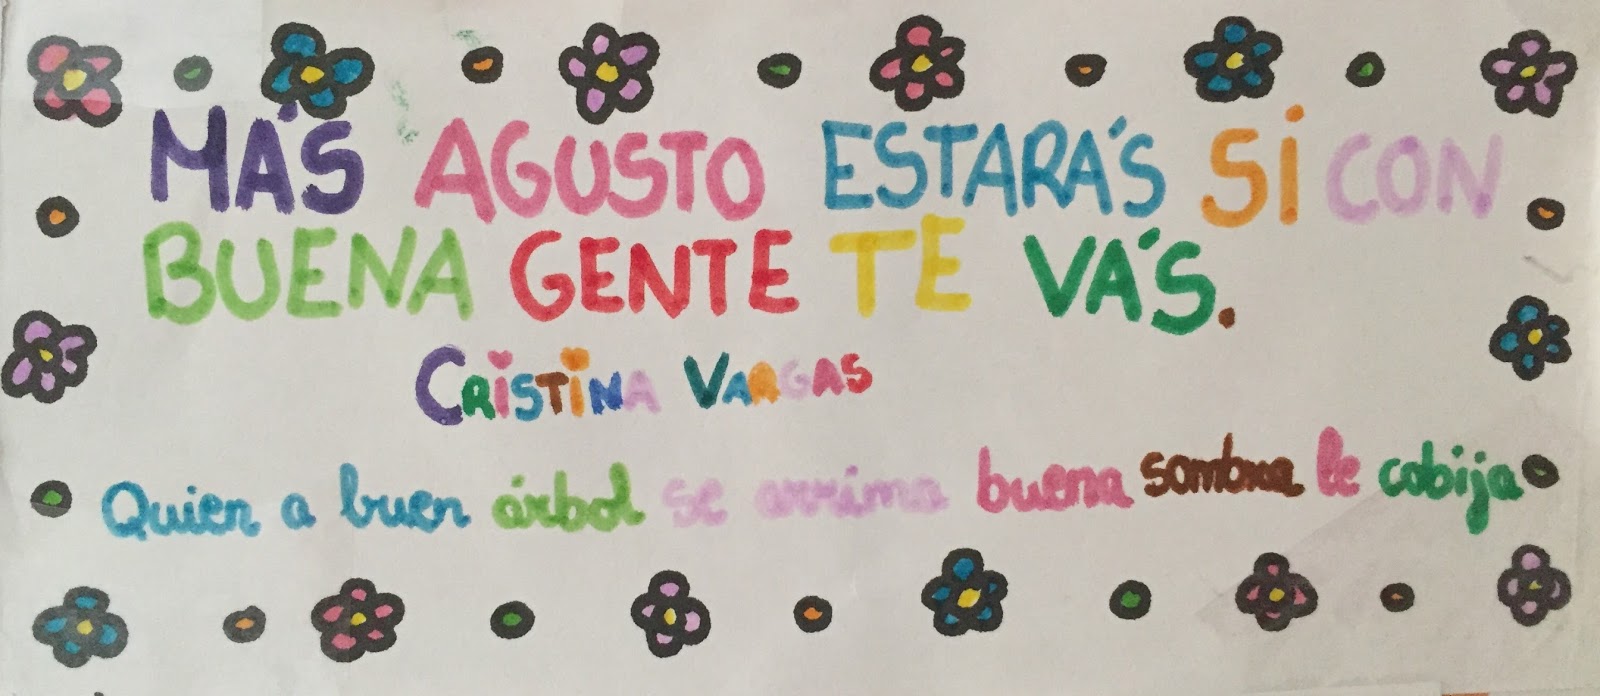 MÁS AGUSTO ESTARÁS SI CON
BUENA GENTE TE VÁS.
CRISTINA VARGAS
Quien a buen árbol se arrima buena sombra le cobija